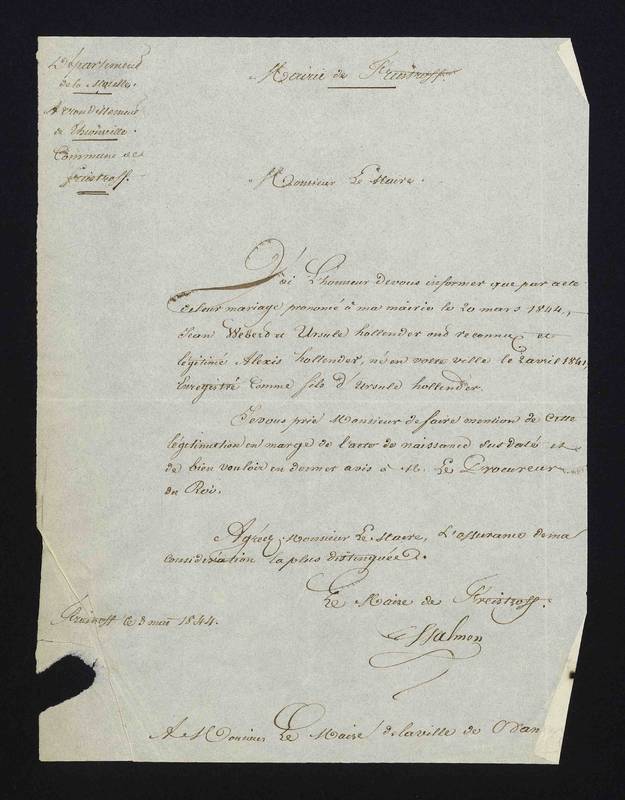 Département
de la Moselle.
Arrondissement
de Thionville.
Commune de
freistroff.
Mairie de Freistroff.
Monsieur Le Maire.
J'ai L'honneur de vous informer que par acte
de leur mariage prononcé à ma mairie le 20 mars 1844,
Jean Weber et Ursule hollender ont reconnu et
légitimé Alexis hollender, né en votre ville le 2 avril 1841,
Enregistré comme fils d'Ursule hollender.
Je vous prie Monsieur de faire mention de cette
légitimation en marge de l'acte de naissance susdaté et
de bien vouloir en donner avis à M. Le Procureur
du Roi.
Agréez, Monsieur Le Maire, L'assurance de ma
considération la plus distinguée.
Le Maire de Freistroff.
Freistroff le 3 mai 1844.
A Monsieur Le Maire de la ville de